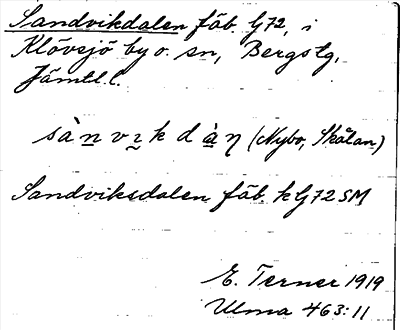 Sandvikdalen fäb. G 72, i
Klövsjö by o. sn, Bergs tg,
Jämtl. l.
sànvɪk dàη (Nybo, Skålan)
Sandviksdalen fäb. k G 72 SM
E. Terner 1919
Ulma 463:11